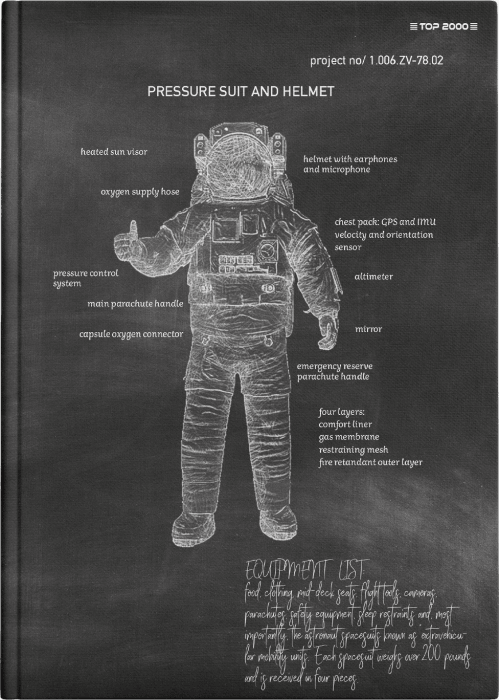 TOP 2000
project no/ 1.006.ZV-78.02
PRESSURE SUIT AND HELMET
heated sun visor
helmet with earphones
and microphone
oxygen supply hose
chest pack: GPS and IMU
velocity and orientation
sensor
pressure control
system
altimeter
main parachute handle
capsule oxygen connector
mirror
emergency reserve
parachute handle
four layers:
comfort liner
gas membrane
restraining mesh
fire retandant outer layer
EQUIPMENT LIST
food, clothing, mid-deck seats, flight tools, cameras,
parachutes, safety equipment, sleep restraints and, most
importantly, the astronaut spacesuits known as extravehicu-
lar mobility units. Each spacesuit weighs over 200 pounds
and is received in four pieces.